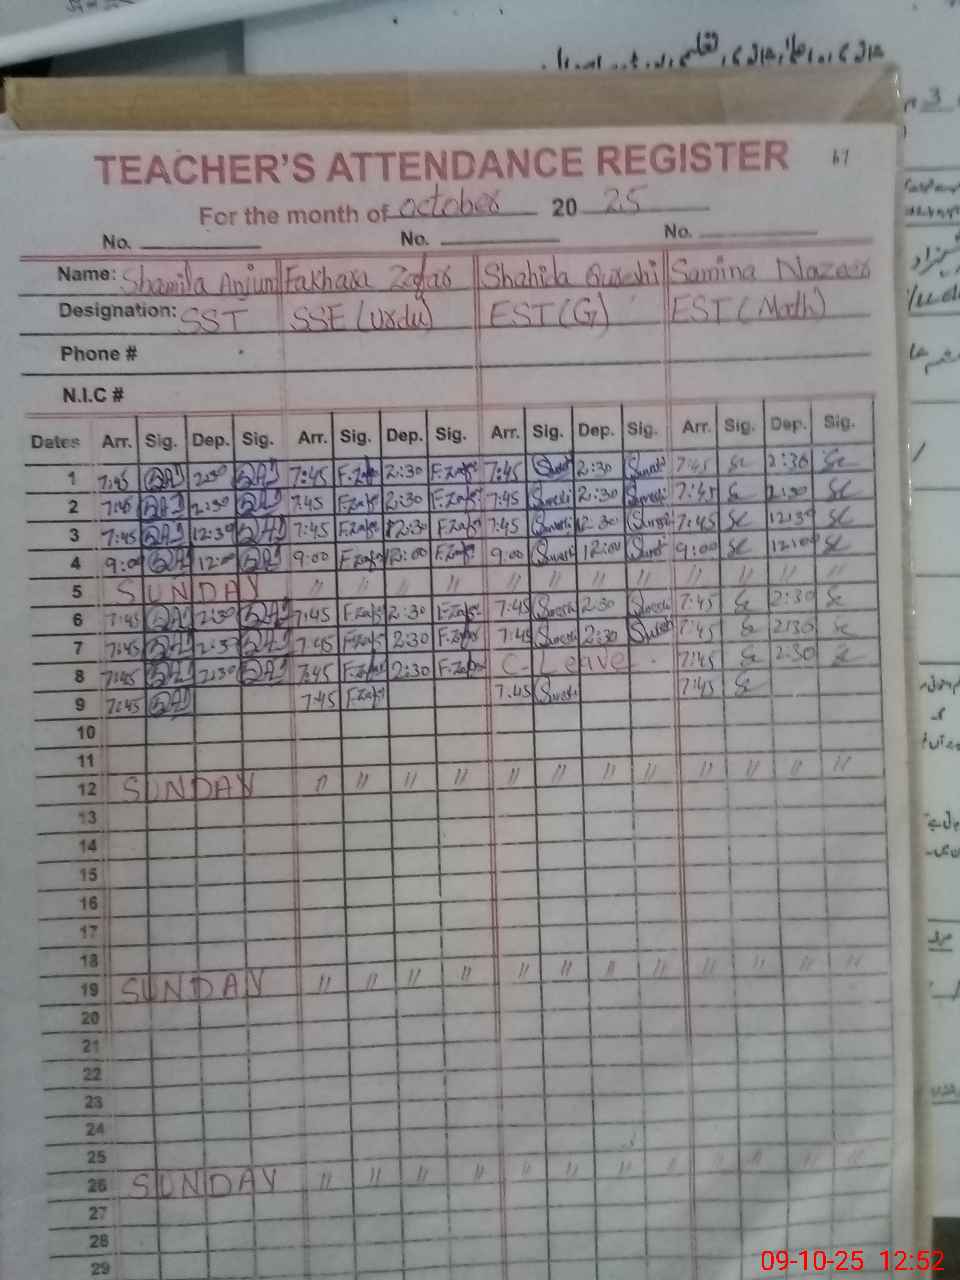 TEACHER'S ATTENDANCE REGISTER 67
For the month of October 20 25
No. No. No.
Name: Shamila Anjum Fakhara Zafar Shahida Qureshi Samina Nazeer
Designation: SST SSE (Urdu) EST (G) EST (Math)
Phone #
N.I.C #
Dates Arr. Sig. Dep. Sig. Arr. Sig. Dep. Sig. Arr. Sig. Dep. Sig. Arr. Sig. Dep. Sig.
1 7:45 2:30 7:45 F.Zafar 2:30 F.Zafar 7:45 2:30 7:45 2:30
2 7:45 2:30 7:45 F.Zafar 2:30 F.Zafar 7:45 2:30 7:45 2:30
3 7:45 12:30 7:45 F.Zafar 12:30 F.Zafar 7:45 12:30 7:45 12:30
4 9:00 12:00 9:00 F.Zafar 12:00 F.Zafar 9:00 12:00 9:00 12:00
5 SUNDAY " " " " " " " " " " " "
6 7:45 2:30 7:45 F.Zafar 2:30 F.Zafar 7:45 2:30 7:45 2:30
7 7:45 2:30 7:45 F.Zafar 2:30 F.Zafar 7:45 2:30 7:45 2:30
8 7:45 2:30 7:45 F.Zafar 2:30 F.Zafar C-Leave 7:45 2:30
9 7:45 7:45 F.Zafar 7:45 7:45
10
11
12 SUNDAY " " " " " " " " " " " "
13
14
15
16
17
18
19 SUNDAY " " " " " " " " " " " "
20
21
22
23
24
25
26 SUNDAY " " " " " " " " " " " "
27
28
29
09-10-25 12:52